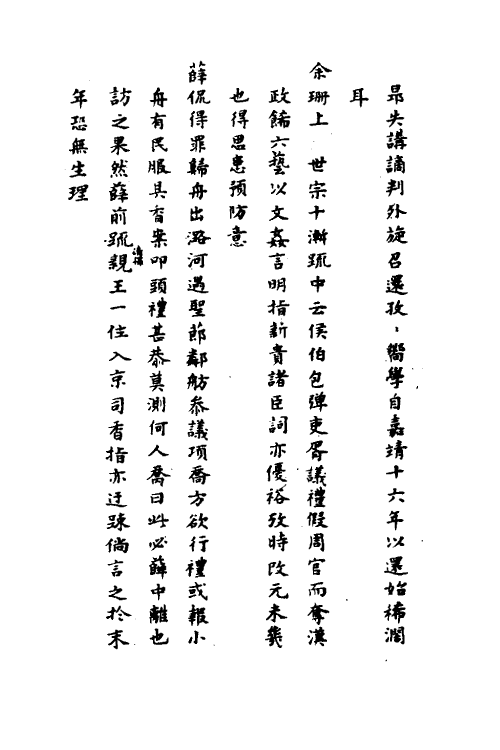 昻失講謫判外旋召還孜〻嚮學自嘉靖十六年以還始稀濶
耳
余珊上 世宗十漸䟽中云侯伯包彈吏胥議禮假周官而奪漢
政餙六藝以文姦言明指新貴諸臣詞亦優裕攷時改元未幾
也得思患預防意
薛侃得罪歸舟出潞河遇聖節鄰舫叅議項喬方欲行禮或報小
舟有民服具香案叩頭禮甚恭莫測何人喬曰此必薛中離也
訪之果然薛前䟽親王一住入京司香指亦迂踈倘言之扵末
年恐無生理